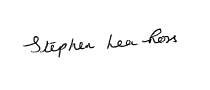 Stephen Lea Ross